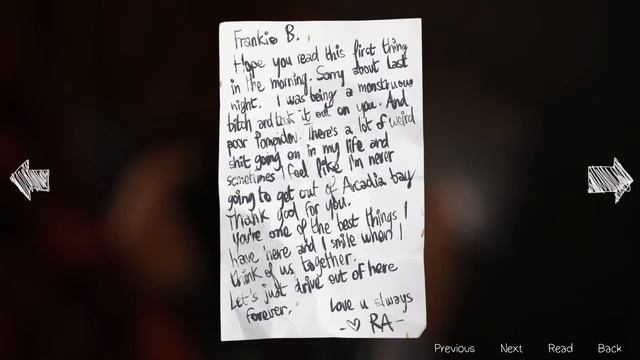 Frankie B.
Hope you read this first thing
in the morning. Sorry about last
night. I was being a monstruous
bitch and took it out on you. And
poor Pompidou. There's a lot of weird
shit going on in my life and
sometimes I feel like I'm never
going to get out of Arcadia bay
Thank god for you.
You're one of the best things I
have here and I smile when I
think of us together.
Let's just drive out of here
forever.
Love u always
-♡ RA-
Previous Next Read Back